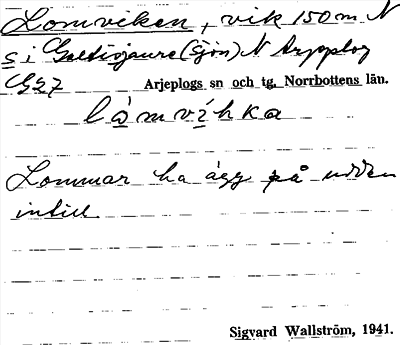 Lomviken, vik 150 m. N
s i Galtisjaure (sjön) N Arjeplog
G27
Arjeplogs sn och tg, Norrbottens län.
låmvíhka
Lommar ha ägg på udden
intill
Sigvard Wallström, 1941.